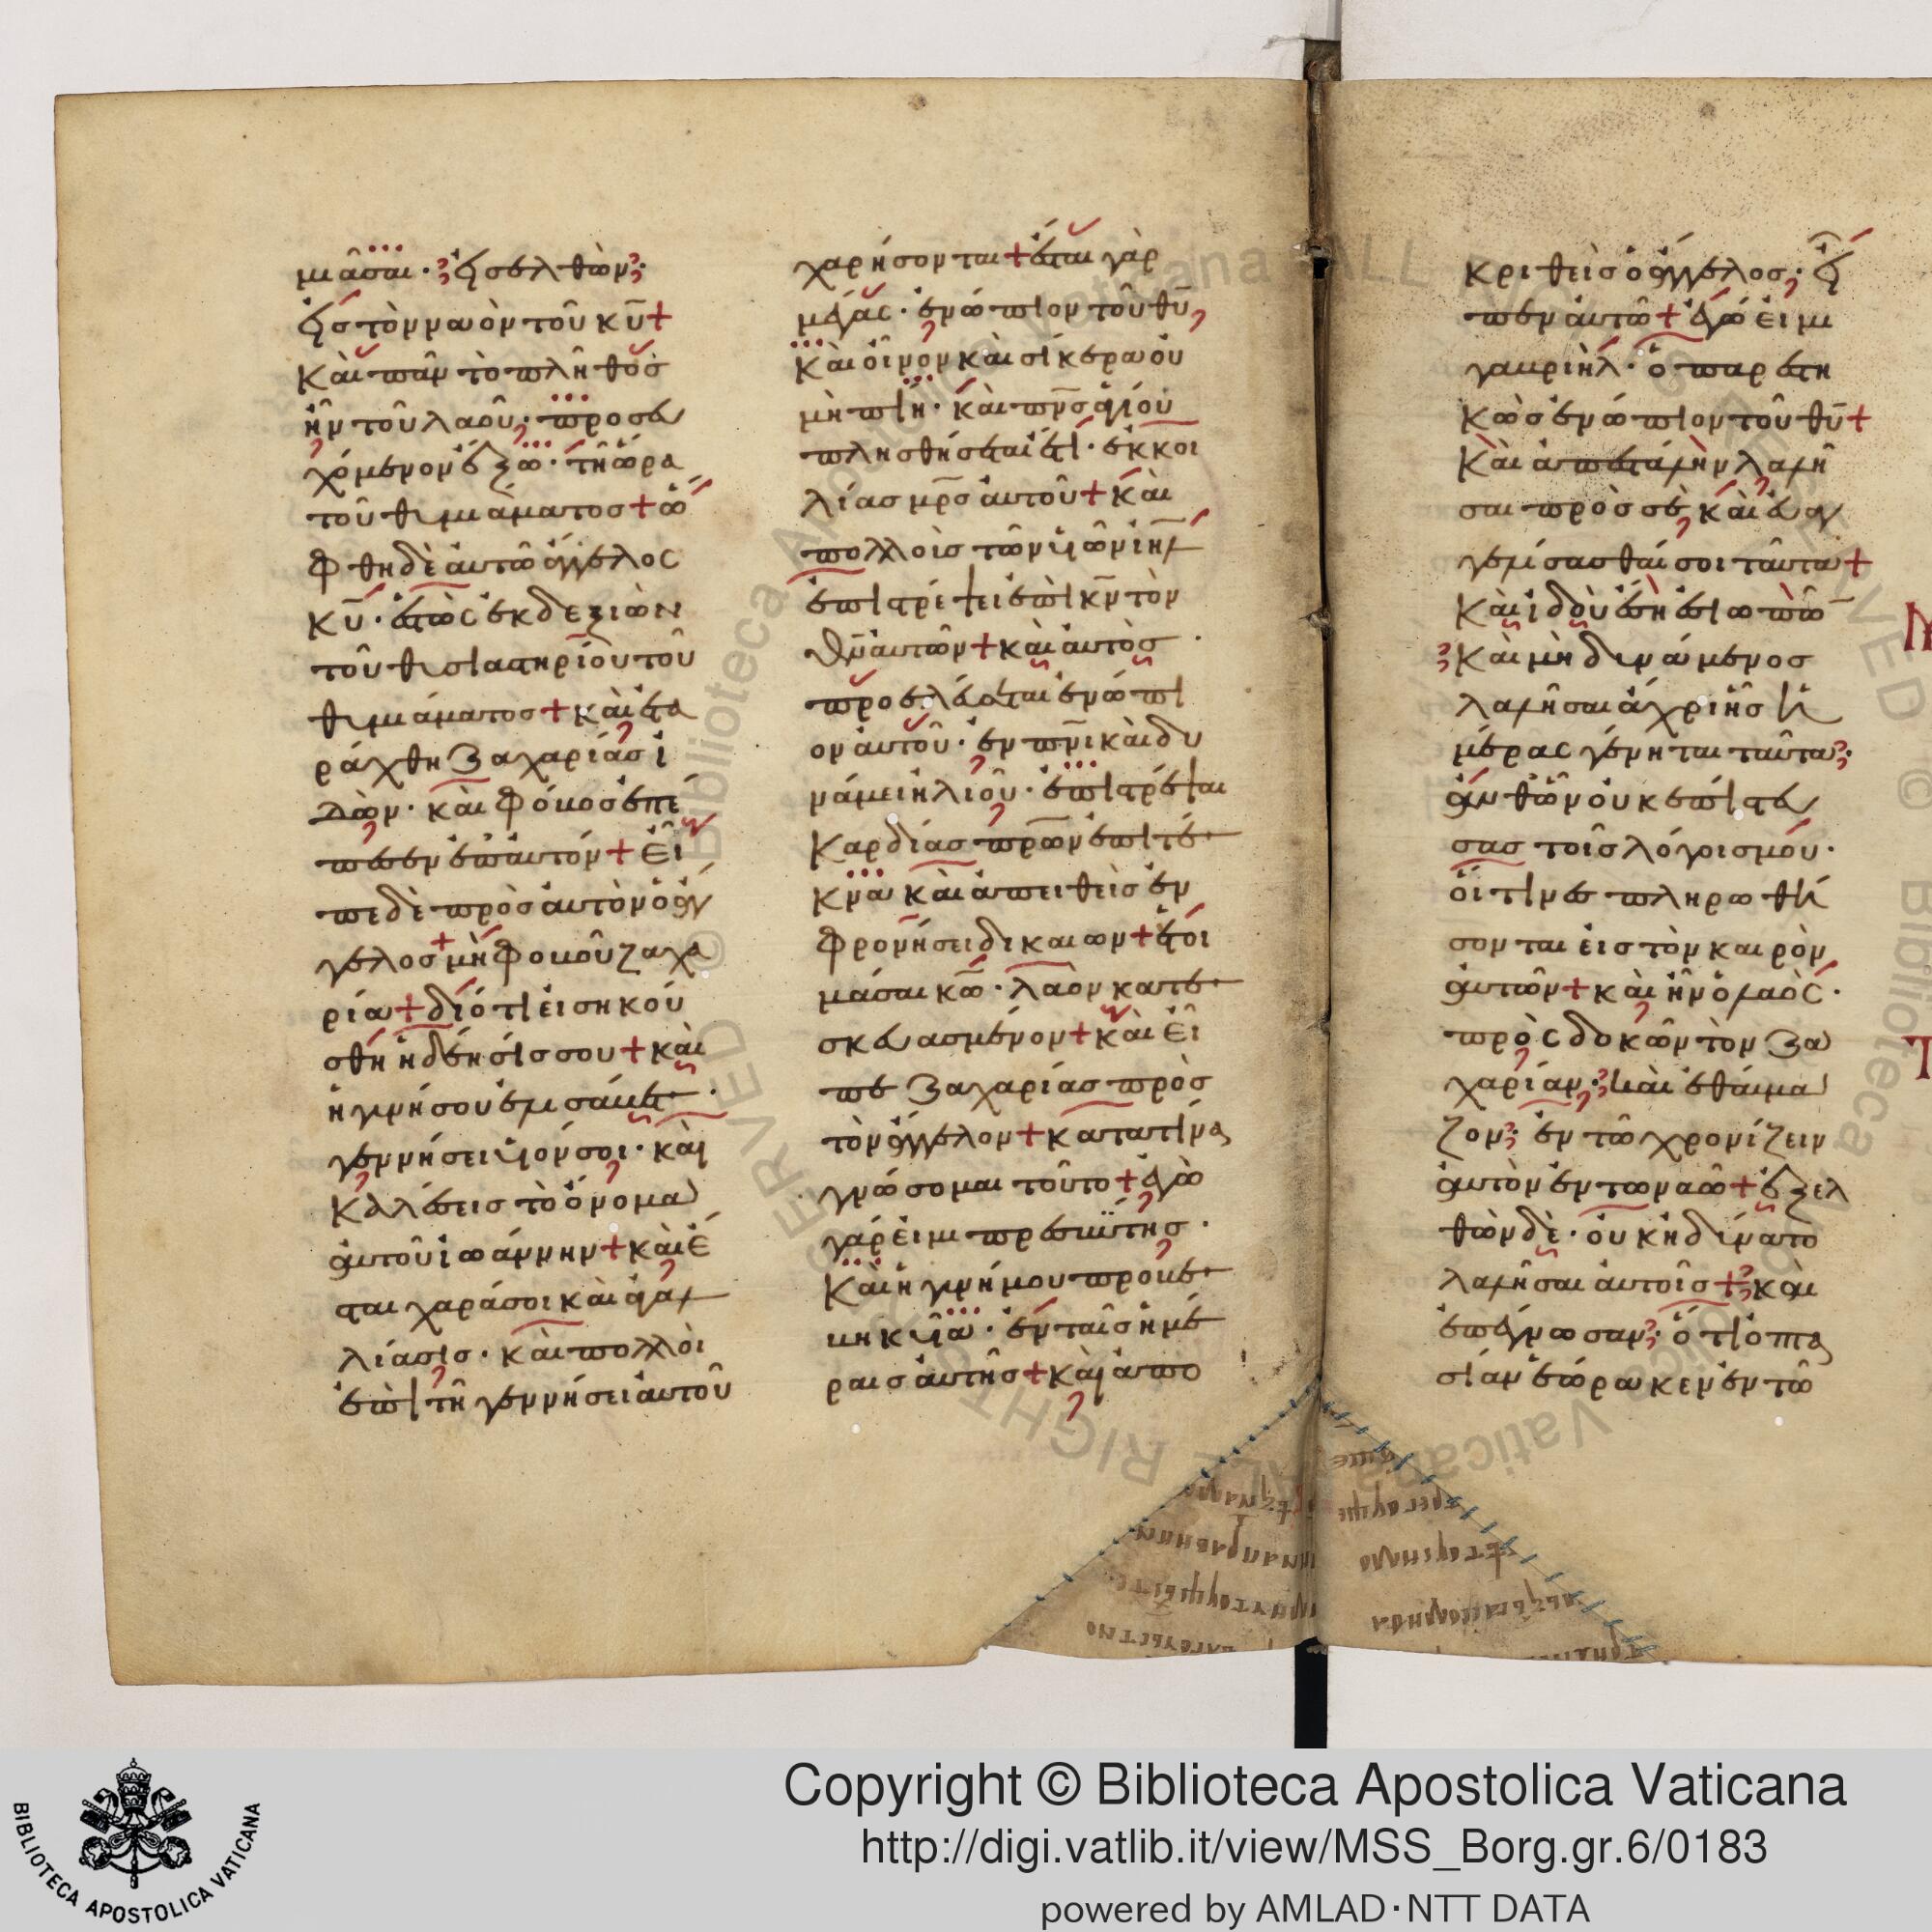 μιᾶσαι· εἰσελθὼν
εἰς τὸν ναὸν τοῦ κ̅υ̅ +
Καὶ πᾶν τὸ πλῆθος
ἦν τοῦ λαοῦ· προσευ
χόμενον ἔξω· τῆ ὥρα
τοῦ θυμιάματος + ὤ
φθη δὲ αὐτῶ ἄγγελος
κ̅υ̅· ἑστὼς ἐκ δεξιῶν
τοῦ θυσιαστηρίου τοῦ
θυμιάματος + καὶ ἐτα
ράχθη Ζαχαρίας ἰ
δὼν· καὶ φόβος ἐπέ
πεσεν ἐπ' αὐτόν + εἶ
πε δὲ πρὸς αὐτὸν ὁ ἄγ
γελος + μὴ φοβοῦ ζαχα
ρία + διότι εἰσηκού
σθη ἡ δέησίς σου + καὶ
ἡ γυνή σου ἐλισάβετ·
γεννήσει υἱόν σοι· καὶ
Καλέσεις τὸ ὄνομα
αὐτοῦ ἰωάννην + καὶ ἔ
σται χαρά σοι καὶ ἀγαλ
λίασις· καὶ πολλοὶ
ἐπὶ τῆ γεννήσει αὐτοῦ
χαρήσονται + ἔσται γὰρ
μέγας· ἐνώπιον τοῦ θ̅υ̅
Καὶ οἶνον καὶ σίκερα οὐ
μὴ πίη· καὶ π̅ν̅ς ἁγίου
πλησθήσεται ἔτι· ἐκ κοι
λίας μ̅ρ̅ς αὐτοῦ + καὶ
πολλοὺς τῶν υἱῶν ι̅η̅λ̅
ἐπιστρέψει ἐπὶ κ̅ν̅ τὸν
θ̅ν̅ αὐτῶν + καὶ αὐτὸς
προελεύσεται ἐνώπι
ον αὐτοῦ· ἐν π̅ν̅ι καὶ δυ
νάμει ἡλιοῦ· ἐπιστρέψαι
Καρδίας π̅ρ̅ων ἐπὶ τέ
κνα καὶ ἀπειθεῖς ἐν
φρονήσει δικαίων + ἑτοι
μάσαι κ̅ω̅· λαὸν κατε
σκευασμένον + καὶ εἶ
πε Ζαχαρίας πρὸς
τὸν ἄγγελον + κατὰ τί να
γνώσομαι τοῦτο + ἐγὼ
γάρ εἰμι πρεσβύτης·
Καὶ ἡ γυνή μου προβε
βηκυῖα· ἐν ταῖς ἡμέ
ραις αὐτῆς + καὶ ἀπο
κριθεὶς ὁ ἄγγελος· εἶ
πεν αὐτῶ + ἐγώ εἰμι
γαβριὴλ· ὁ παρεστη
κὼς ἐνώπιον τοῦ θ̅υ̅ +
Καὶ ἀπεστάλην λαλῆ
σαι πρὸς σὲ καὶ εὐαγ
γελίσασθαί σοι ταῦτα +
Καὶ ἰδοὺ ἔση σιωπῶ̅
Καὶ μὴ δυνάμενος
λαλῆσαι ἄχρι ἧς ἡ
μέρας γένηται ταῦτα·
ἀνθῶν οὐκ ἐπίστευ
σας τοῖς λόγοις μου·
οἵτινες πληρωθή
σονται εἰς τὸν καιρὸν
αὐτῶν + καὶ ἦν ὁ λαὸς·
προσδοκῶν τὸν Ζα
χαρίαν· καὶ ἐθαύμα
ζον· ἐν τῶ χρονίζειν
αὐτὸν ἐν τῶ ναῶ + ἐξελ
θὼν δὲ· οὐκ ἠδύνατο
λαλῆσαι αὐτοῖς + καὶ
ἐπέγνωσαν· ὅτι ὀπτα
σίαν ἑώρακεν ἐν τῶ
BIBLIOTECA APOSTOLICA VATICANA
Copyright © Biblioteca Apostolica Vaticana
http://digi.vatlib.it/view/MSS_Borg.gr.6/0183
powered by AMLAD·NTT DATA